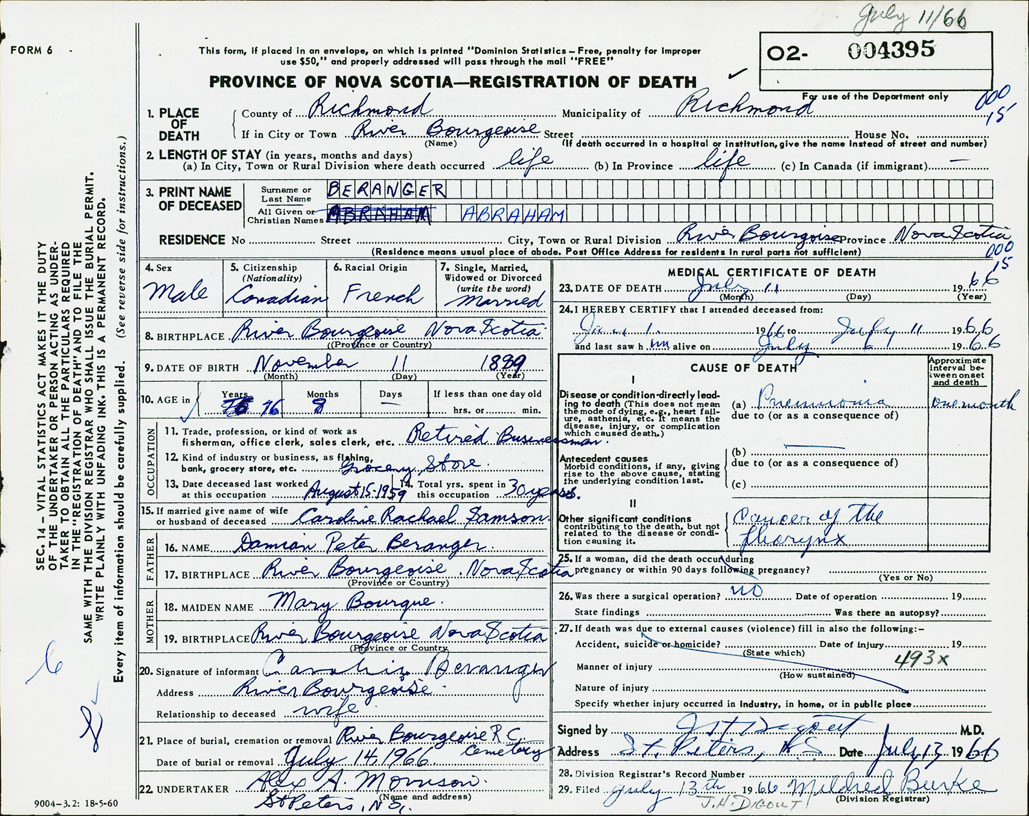 July 11/66
FORM 6
This form, if placed in an envelope, on which is printed "Dominion Statistics – Free, penalty for improper
use $50," and properly addressed will pass through the mail "FREE"
02- 004395
PROVINCE OF NOVA SCOTIA—REGISTRATION OF DEATH
For use of the Department only
000
15
1. PLACE OF DEATH
County of Richmond Municipality of Richmond
If in City or Town River Bourgeoise Street House No.
(Name) (If death occurred in a hospital or institution, give the name instead of street and number)
2. LENGTH OF STAY (in years, months and days)
(a) In City, Town or Rural Division where death occurred life (b) In Province life (c) In Canada (if immigrant) —
3. PRINT NAME OF DECEASED
Surname or Last Name BERANGER
All Given or Christian Names ABRAHAM ABRAHAM
RESIDENCE No Street City, Town or Rural Division River Bourgoise Province Nova Scotia
(Residence means usual place of abode. Post Office Address for residents in rural parts not sufficient)
000
15
4. Sex Male
5. Citizenship (Nationality) Canadian
6. Racial Origin French
7. Single, Married, Widowed or Divorced (write the word) Married
8. BIRTHPLACE River Bourgeoise Nova Scotia
(Province or Country)
9. DATE OF BIRTH November 11 1889
(Month) (Day) (Year)
10. AGE in Years 76 Months 8 Days — If less than one day old
hrs. or min.
OCCUPATION
11. Trade, profession, or kind of work as
fisherman, office clerk, sales clerk, etc. Retired Businessman.
12. Kind of industry or business, as fishing,
bank, grocery store, etc. Grocery Store.
13. Date deceased last worked
at this occupation August 15-1959
14. Total yrs. spent in
this occupation 30 years.
15. If married give name of wife
or husband of deceased Caroline Rachael Samson
FATHER
16. NAME Damian Peter Beranger.
17. BIRTHPLACE River Bourgeoise Nova Scotia
(Province or Country)
MOTHER
18. MAIDEN NAME Mary Bourque.
19. BIRTHPLACE River Bourgeoise Nova Scotia
(Province or Country)
20. Signature of informant Beranger
Address River Bourgeoise.
Relationship to deceased wife
21. Place of burial, cremation or removal River Bourgeoise R.C. Cemetery
Date of burial or removal July 14, 1966
22. UNDERTAKER Alex A. Morrison.
(Name and address)
St Peters, N.S.
9004-3.2: 18-5-60
MEDICAL CERTIFICATE OF DEATH
23. DATE OF DEATH July 11 1966
(Month) (Day) (Year)
24. I HEREBY CERTIFY that I attended deceased from:
Jan 1. 1966 to July 11 1966
and last saw him alive on July 6 1966
CAUSE OF DEATH
Approximate interval between onset and death
I
Disease or condition directly leading to death (This does not mean the mode of dying, e.g., heart failure, asthenia, etc. It means the disease, injury, or complication which caused death.)
(a) Pneumonia one month
due to (or as a consequence of)
Antecedent causes
Morbid conditions, if any, giving rise to the above cause, stating the underlying condition last.
(b) —
due to (or as a consequence of)
(c)
II
Other significant conditions
contributing to the death, but not related to the disease or condition causing it.
Cancer of the
Pharynx
25. If a woman, did the death occur during
pregnancy or within 90 days following pregnancy?
(Yes or No)
26. Was there a surgical operation? NO Date of operation 19
State findings Was there an autopsy?
27. If death was due to external causes (violence) fill in also the following:–
Accident, suicide or homicide? Date of injury 19
(State which)
493x
Manner of injury
(How sustained)
Nature of injury
Specify whether injury occurred in industry, in home, or in public place
Signed by J H Digout M.D.
Address St. Peters, N.S Date July 13 1966
28. Division Registrar's Record Number
29. Filed July 13th 1966 Mildred Burke
J.H. DIGOUT (Division Registrar)
SEC. 14 – VITAL STATISTICS ACT MAKES IT THE DUTY
OF THE UNDERTAKER OR PERSON ACTING AS UNDER-
TAKER TO OBTAIN ALL THE PARTICULARS REQUIRED
IN THE "REGISTRATION OF DEATH" AND TO FILE THE
SAME WITH THE DIVISION REGISTRAR WHO SHALL ISSUE THE BURIAL PERMIT.
WRITE PLAINLY WITH UNFADING INK. THIS IS A PERMANENT RECORD.
Every item of information should be carefully supplied. (See reverse side for instructions.)
6